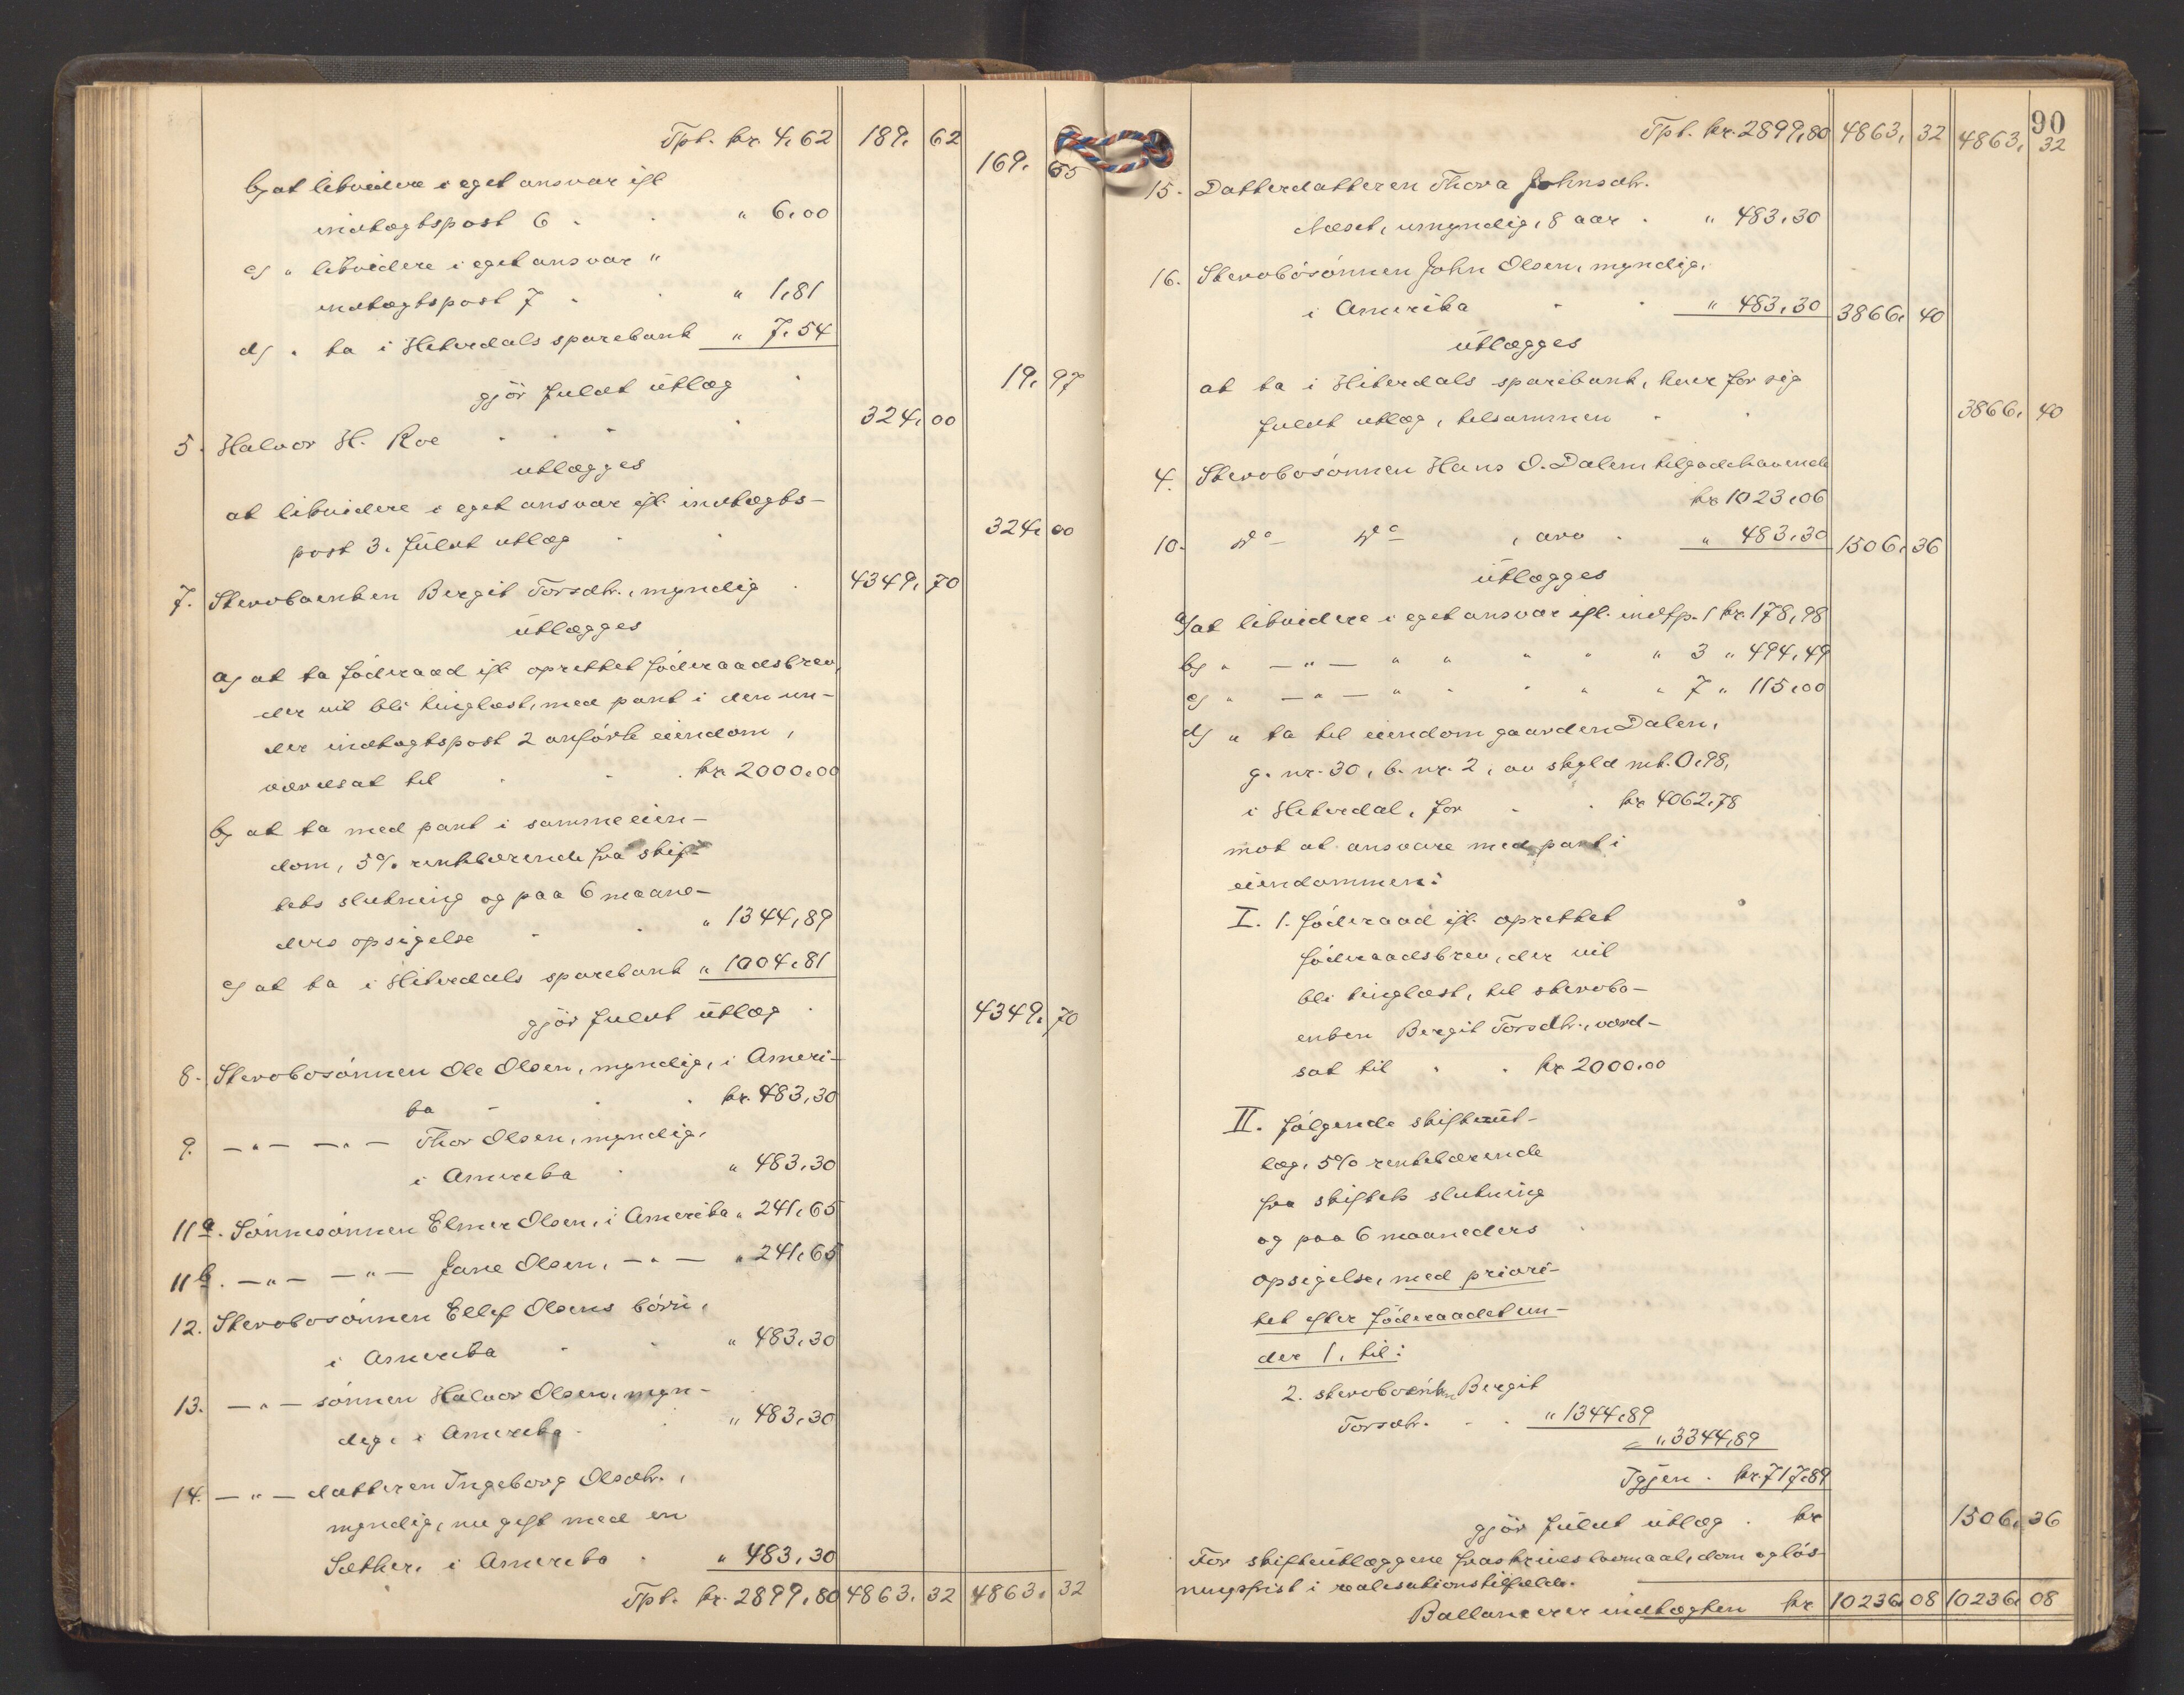 Tpt. kr. 4,62 189, 62
169, 65
b) at likvidere i eget ansvar ifl.
indtægtspost 6 . . " 6,00
c) " likvidere i eget ansvar "
indtægtspost 7 . . " 1,81
d) " ta i Hiterdals sparebank " 7,54
gjör fuldt utlæg . 19, 97
5. Halvor H. Roe . . . . 324, 00
utlægges
at likvidere i eget ansvar ifl. indtægts-
post 3. Fuldt utlæg . . 324, 00
7. Stervboenken Bergit Torsdtr., myndig . 4349, 70
utlægges
a) at ta föderaad ifl. oprettet föderaadsbrev,
der vil bli tinglæst, med pant i den un-
der indtægtspost 2 anförte eiendom,
værdsat til . . . kr. 2000,00
b) at ta med pant i samme eien-
dom, 5% rentebærende fra skif-
tets slutning og paa 6 maane-
ders opsigelse . . " 1344,89
c) at ta i Hiterdals sparebank " 1004,81
gjör fuldt utlæg . 4349, 70
8. Stervbosönnen Ole Olsen, myndig, i Ameri-
ka . . . kr. 483,30
9. —"— —"— Thor Olsen, myndig,
i Amerika . " 483,30
11a. Sönnesönnen Elmer Olsen, i Amerika " 241,65
11b. —"— —"— Jane Olsen, —"— " 241,65
12. Stervbosönnen Ellef Olsens börn,
i Amerika . . " 483,30
13. —"— sönnen Halvor Olsen, myn-
dig, i Amerika . . " 483,30
14. —"— datteren Ingeborg Olsdtr.,
myndig, nu gift med en
Sæther, i Amerika . " 483,30
Tpt. kr. 2899,80 4863, 32 4863, 32
90
Tpt. kr. 2899,80 4863, 32 4863, 32
15. Datterdatteren Thora Johnsdtr.
Næset, umyndig, 8 aar . " 483,30
16. Stervbosönnen John Olsen, myndig,
i Amerika . . " 483,30 3866, 40
utlægges
at ta i Hiterdals sparebank, hver for sig
fuldt utlæg, tilsammen . . 3866, 40
4. Stervbosönnen Hans O. Dalens tilgodehavende
kr. 1023,06
10. do do , arv . " 483,30 1506, 36
utlægges
a) at likvidere i eget ansvar ifl. indtp. 1 kr. 178,98
b) " —"— " " " " " 3 " 494,49
c) " —"— " " " " " 7 " 115,00
d) " ta til eiendom gaarden Dalen,
g. nr. 30, b. nr. 2, av skyld mk. 0,98,
i Hiterdal, for . . kr. 4062,78
mot at ansvare med pant i
eiendommen:
I. 1. föderaad ifl. oprettet
föderaadsbrev, der vil
bli tinglæst, til stervbo-
enken Bergit Torsdtr., værd-
sat til . . kr. 2000,00
II. fölgende skifteut-
læg, 5% rentebærende
fra skiftets slutning
og paa 6 maaneders
opsigelse, med priori-
tet efter föderaadet un-
der 1, til:
2. stervboenken Bergit
Torsdtr. . . " 1344,89
" 3344,89
Igjen . kr. 717,89
gjör fuldt utlæg . kr. 1506, 36
For skifteutlæggene fraskrives lovmaal, dom og lös-
ningsfrist i realisationstilfælde.
Ballancerer indtægten kr. 10236, 08 10236, 08